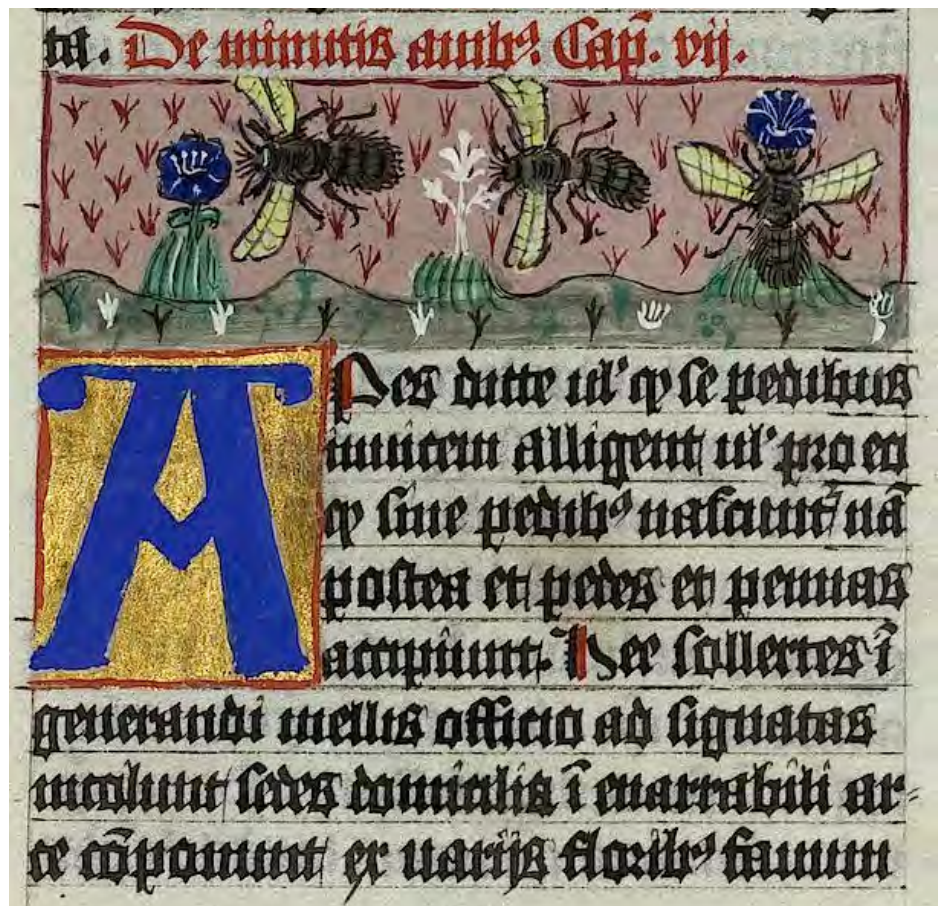 ta. De minutis auibꝰ. Cap̃. vij.
APes dicte ul' qꝫ se pedibus
inuicem alligent ul' pro eo
qꝫ sine pedibꝰ nascunt᷑ nã
postea et pedes et pennas
accipiunt. Hee sollertes ĩ
generandi mellis officio ad signatas
incolunt sedes domicilia ĩ enarrabili ar-
te cõponunt ex uarijs floribꝰ fauum